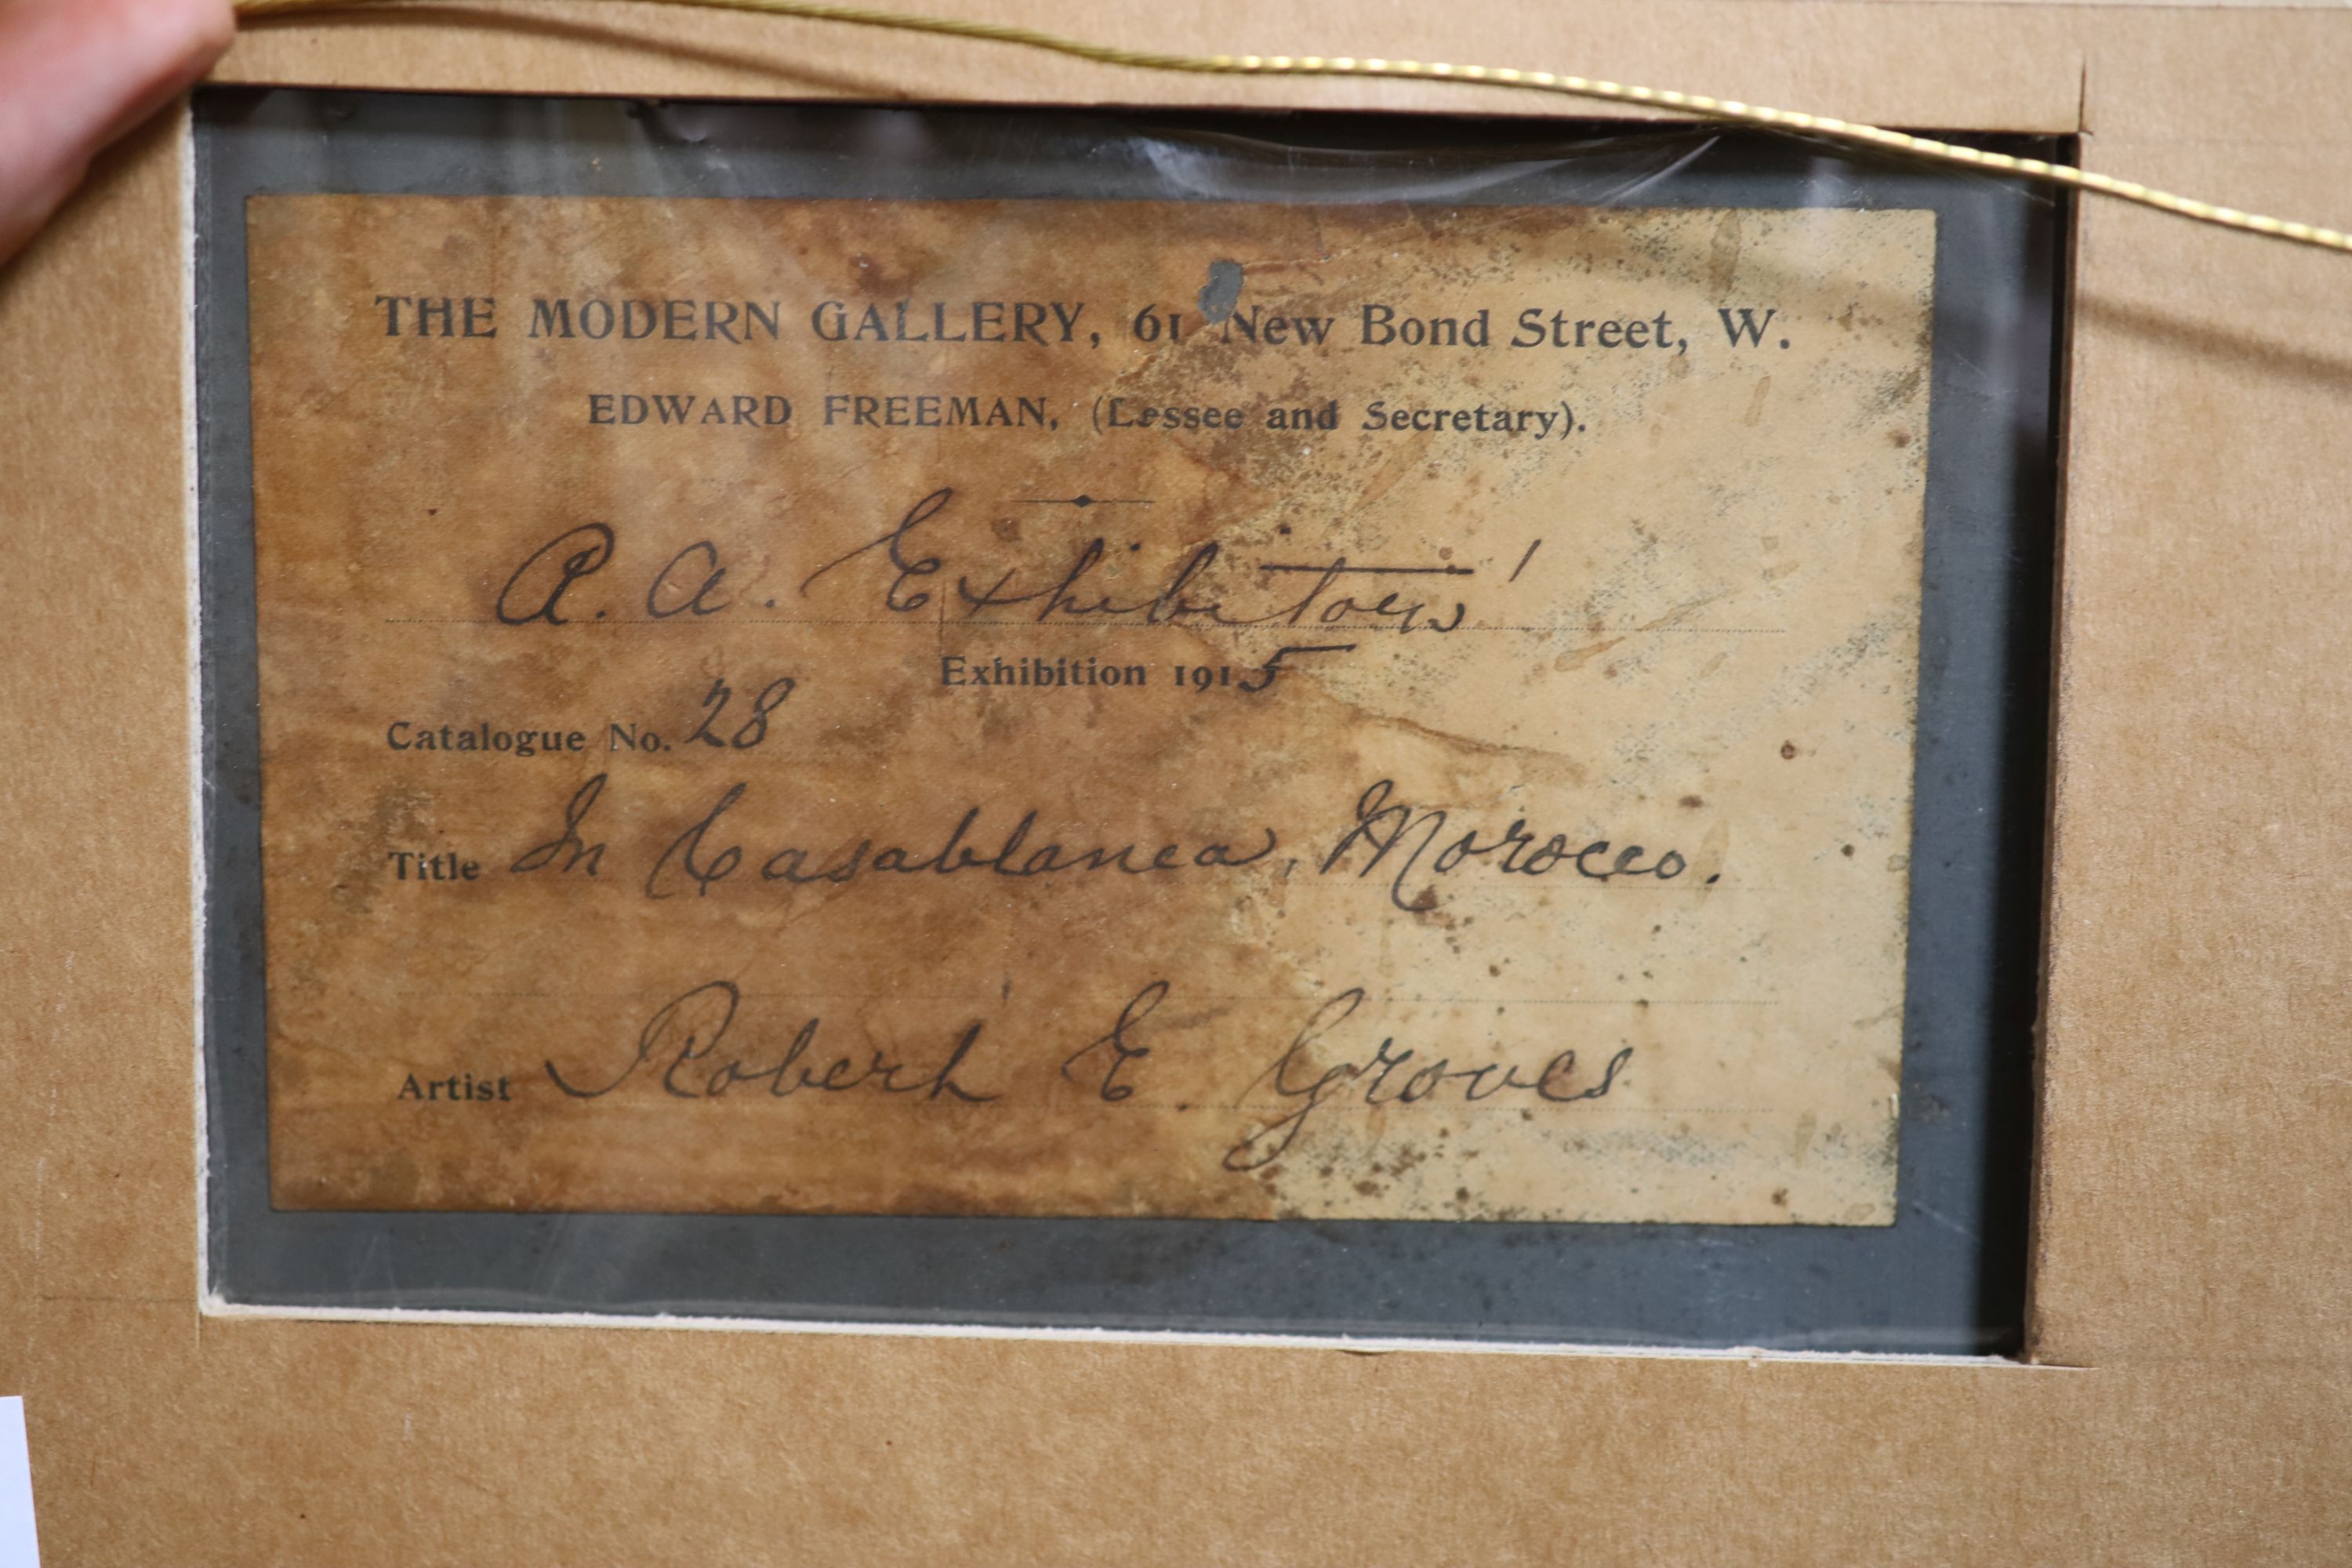 THE MODERN GALLERY, 61 New Bond Street, W.
EDWARD FREEMAN, (Lessee and Secretary).
R. A. Exhibitors'
Exhibition 1915
Catalogue No. 28
Title In Casablanca, Morocco.
Artist Robert E. Groves